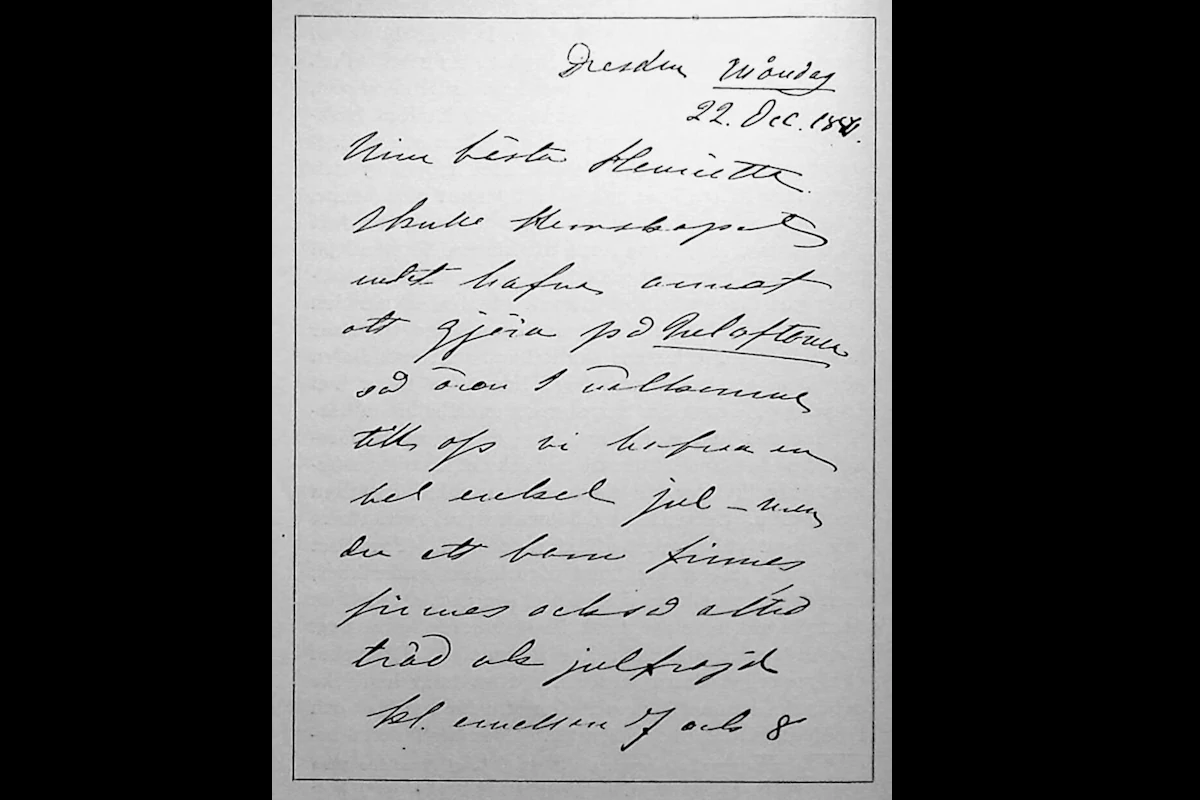 Dresden Måndag
22. Dec. 1884.
Min bästa Henriette.
Skulle Herrskapet
indet hafva annat
att gjöra på Julaftonen
så ären I välkomne
till oss vi hafva en
hel enkel jul – men
der ett barn finnes
finnes också alltid
träd och julfrojd
kl. emellan 7 och 8